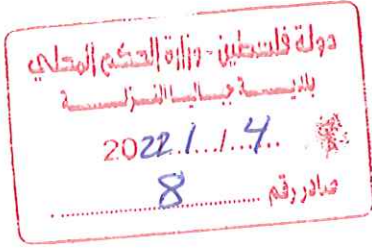 دولة فلسطين - وزارة الحكم المحلي
بلديـــة جبـاليـا النـــزلـــة
2022/1/4
صادر رقم 8